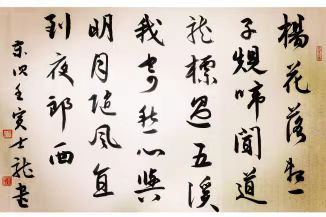 楊花落尽
子規啼聞道
龍標過五溪
我寄愁心與
明月隨風直
到夜郎西
壬寅士龍書